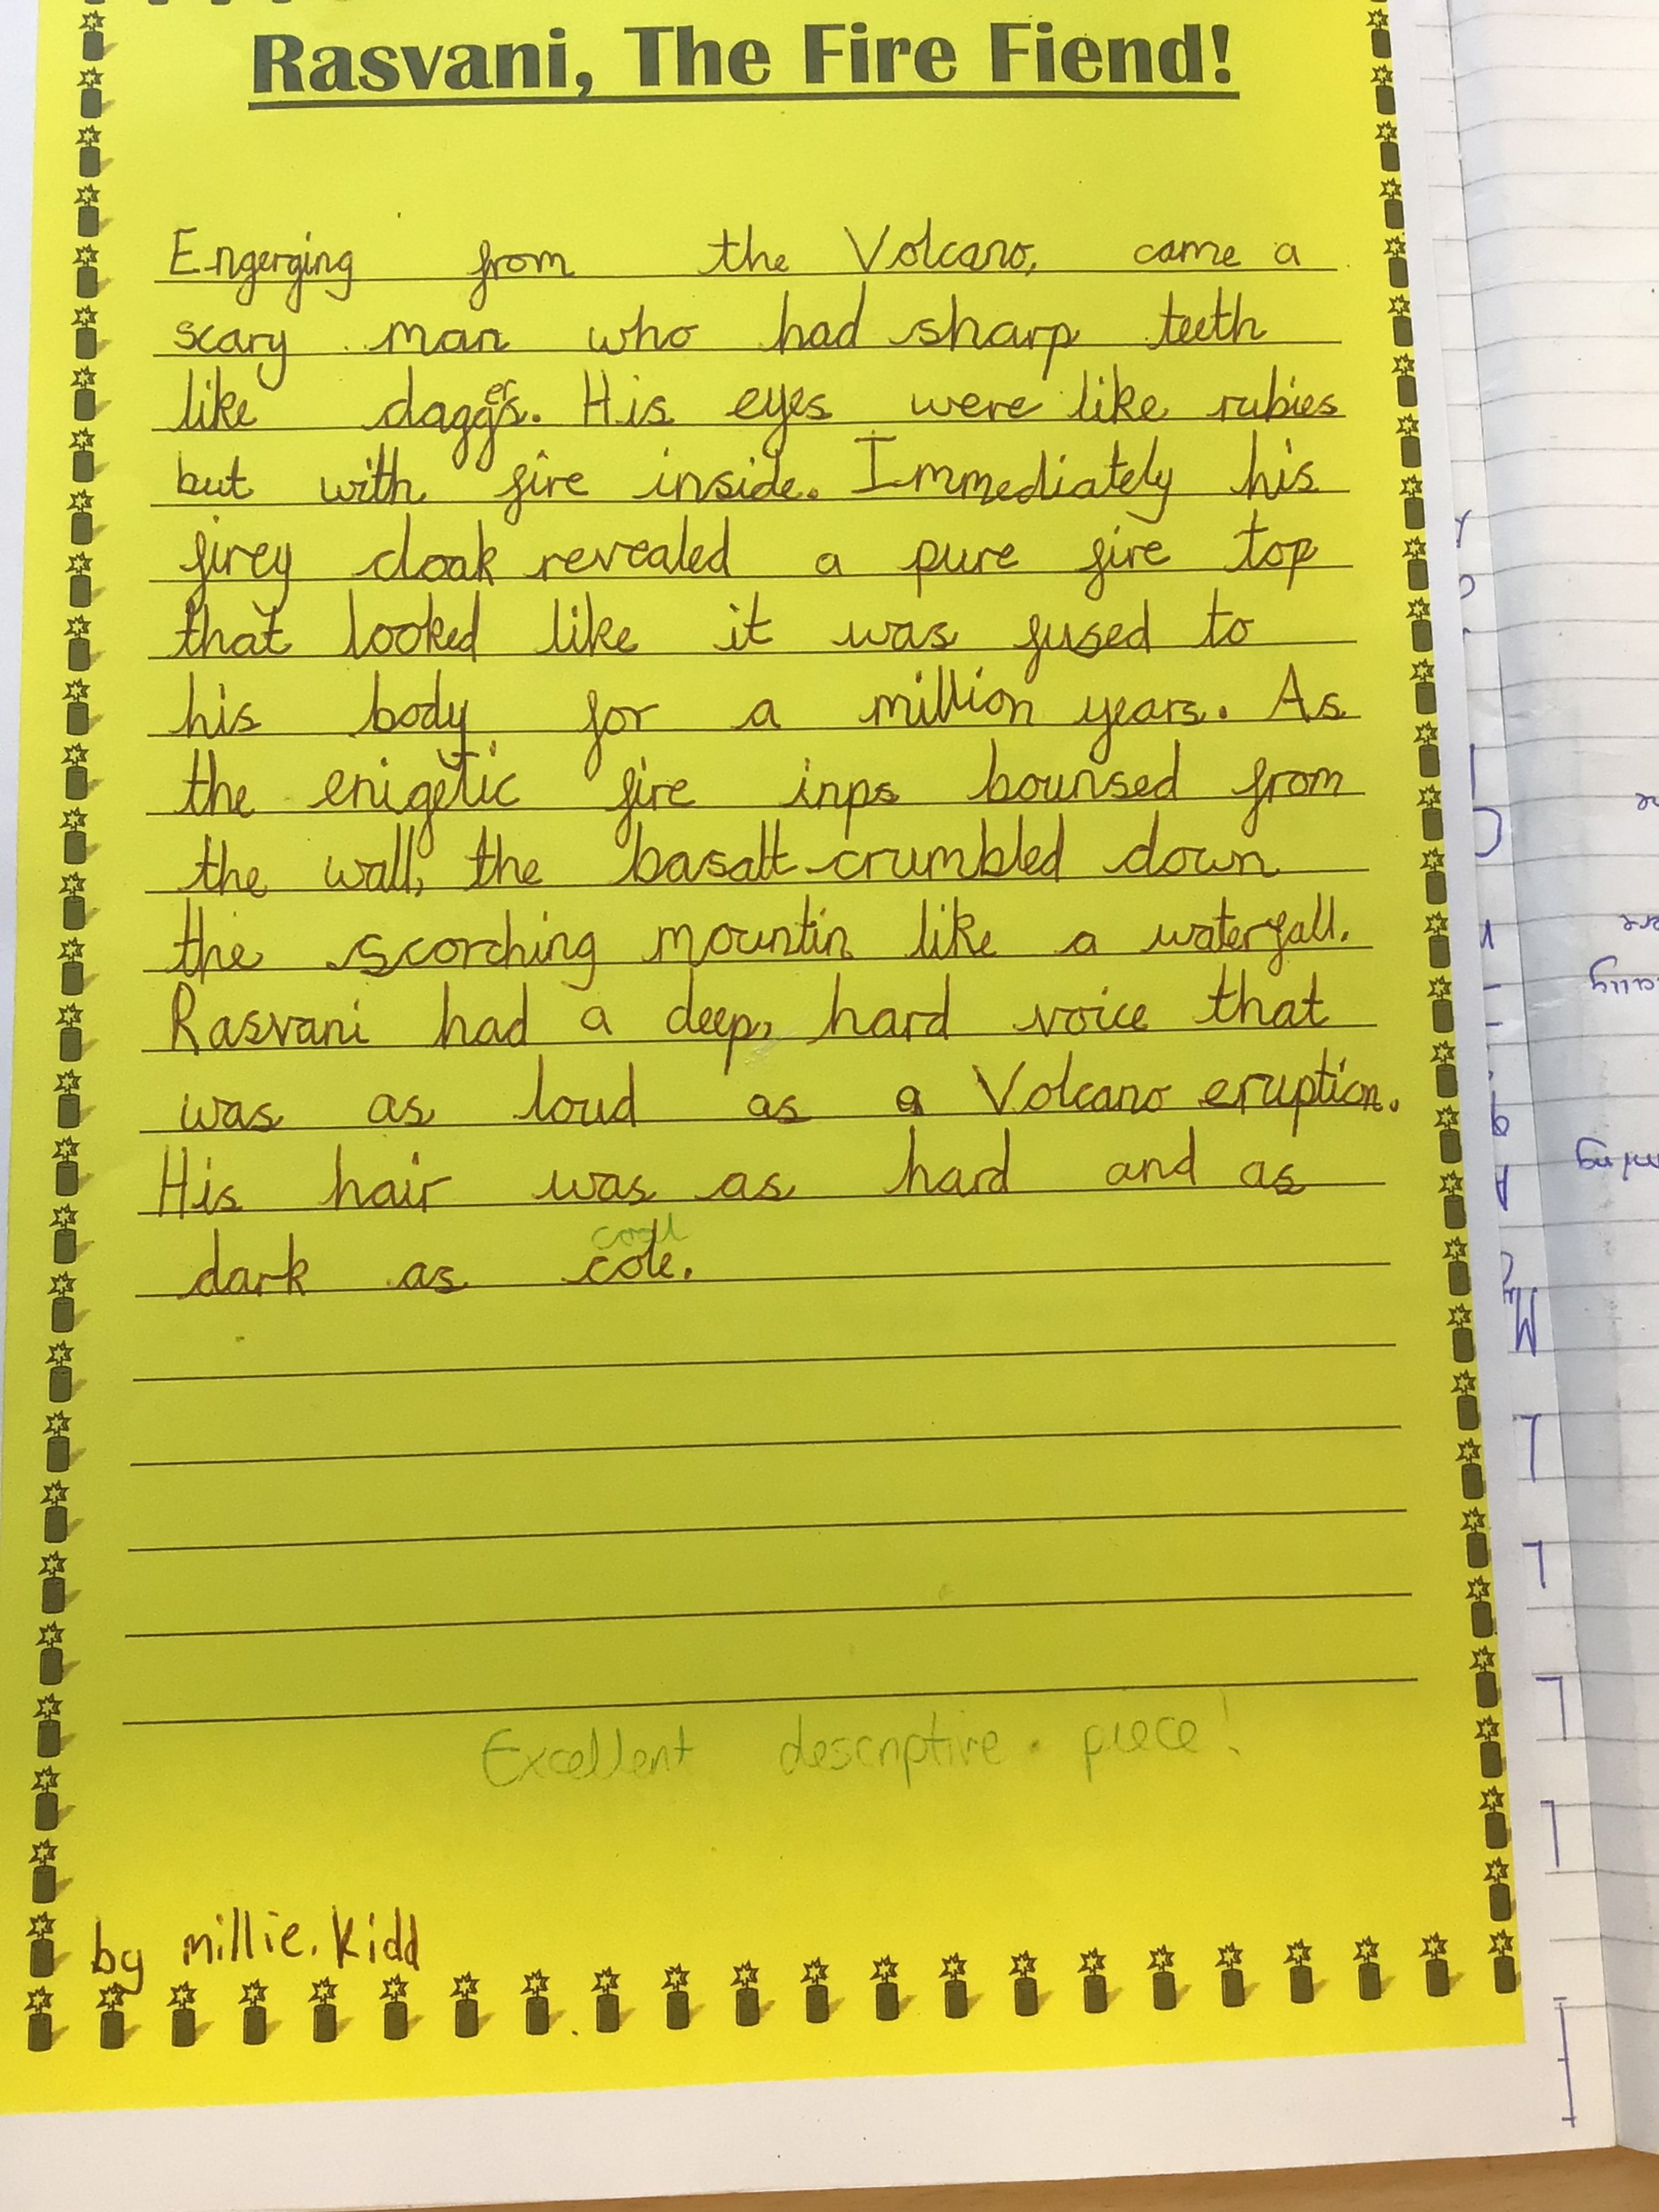 Rasvani, The Fire Fiend!
Engerging from the Volcano, came a
scary man who had sharp teeth
like daggers. His eyes were like rubies
but with fire inside. Immediately his
firey cloak revealed a pure fire top
that looked like it was fused to
his body for a million years. As
the enigetic fire inps bounsed from
the wall, the basalt crumbled down
the scorching mountin like a waterfall.
Rasvani had a deep, hard voice that
was as loud as a Volcano eruption.
His hair was as hard and as
coal
dark as cole.
Excellent descriptive piece!
by millie. Kidd